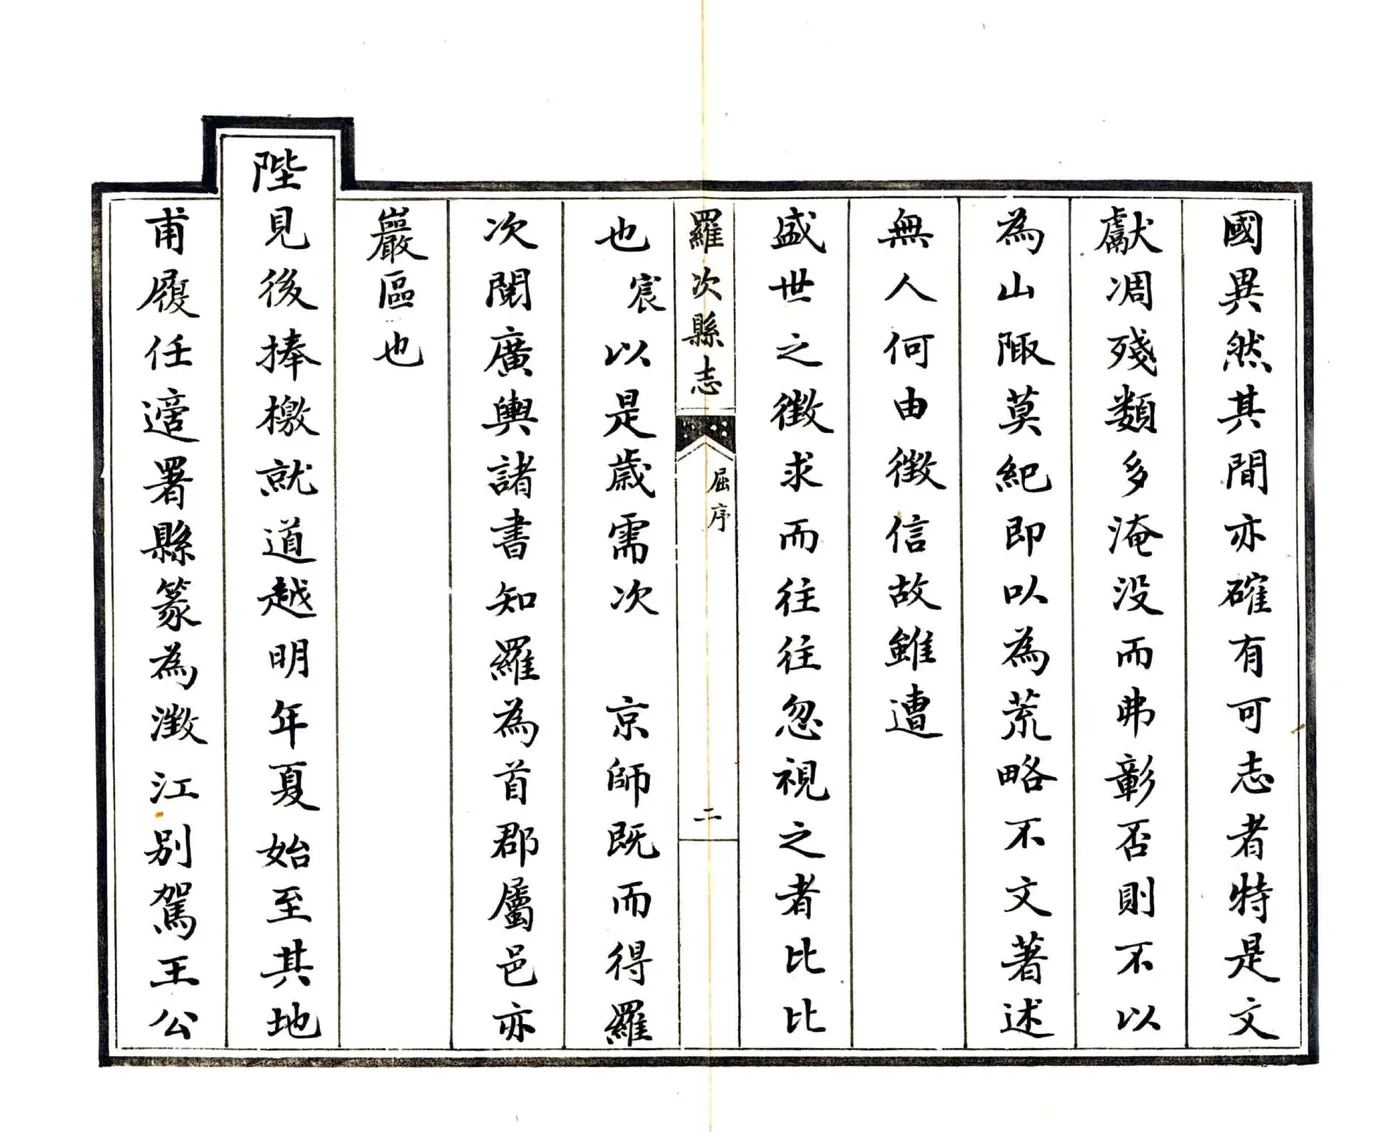 國異然其間亦確有可志者特是文
獻凋殘類多淹没而弗彰否則不以
為山陬莫紀即以為荒略不文著述
無人何由徵信故雖遭
盛世之徵求而往往忽視之者比比
羅次縣志
屈序
二
也宸以是歲需次 京師既而得羅
次閱廣輿諸書知羅為首郡屬邑亦
巖區也
陛見後捧檄就道越明年夏始至其地
甫履任適署縣篆為澂江別駕王公